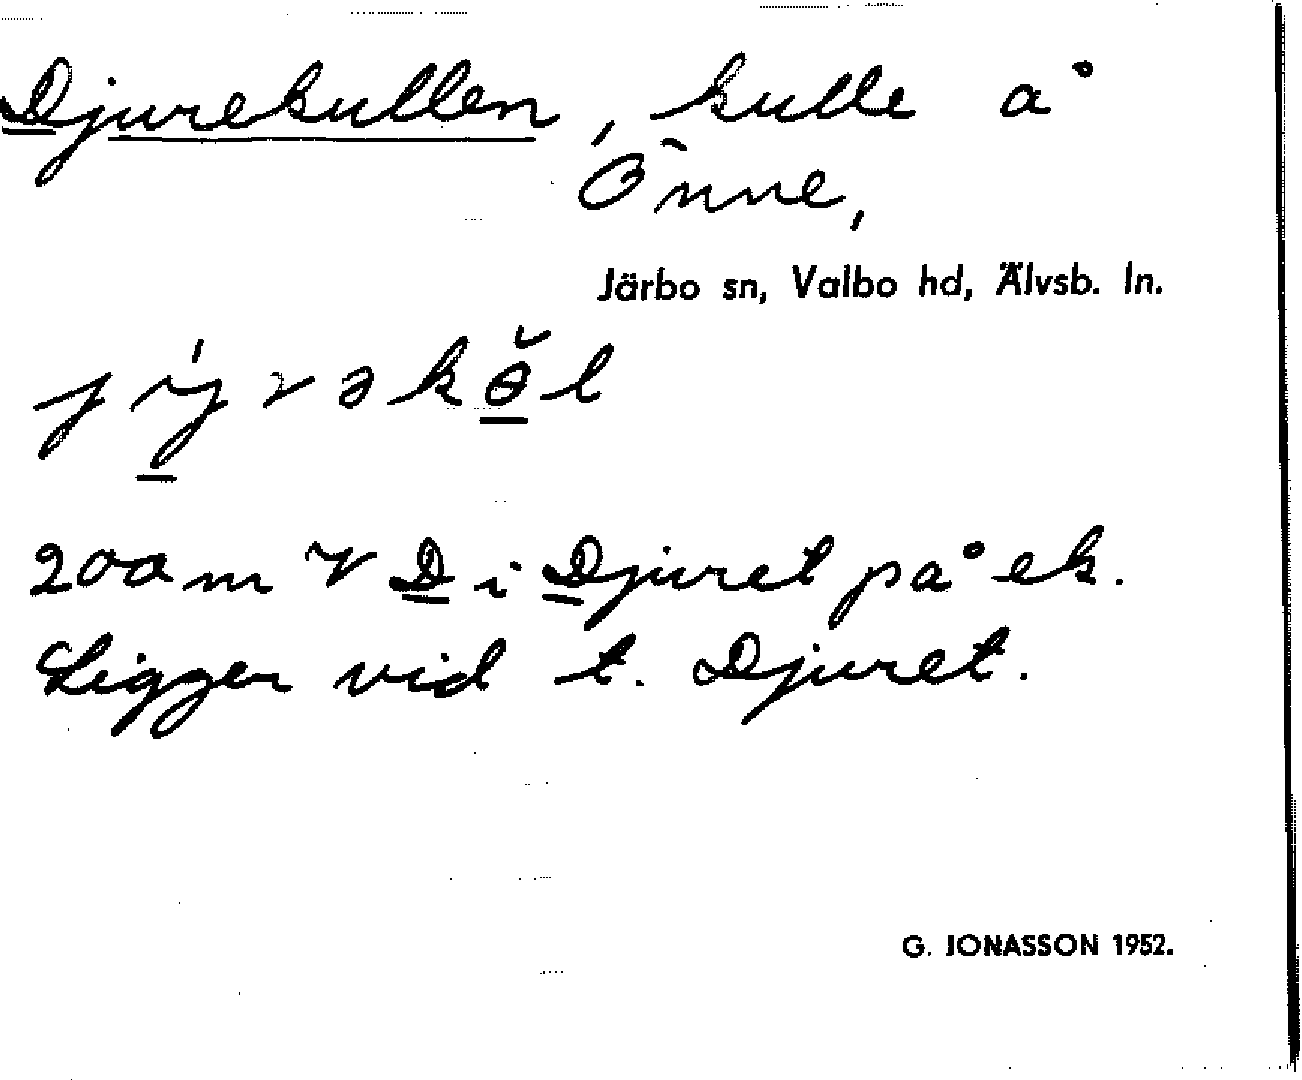 Djurekullen, kulle å
Önne,
Järbo sn, Valbo hd, Älvsb. ln.
200 m V D i Djuret på ek.
Ligger vid t. Djuret.
G. JONASSON 1952.